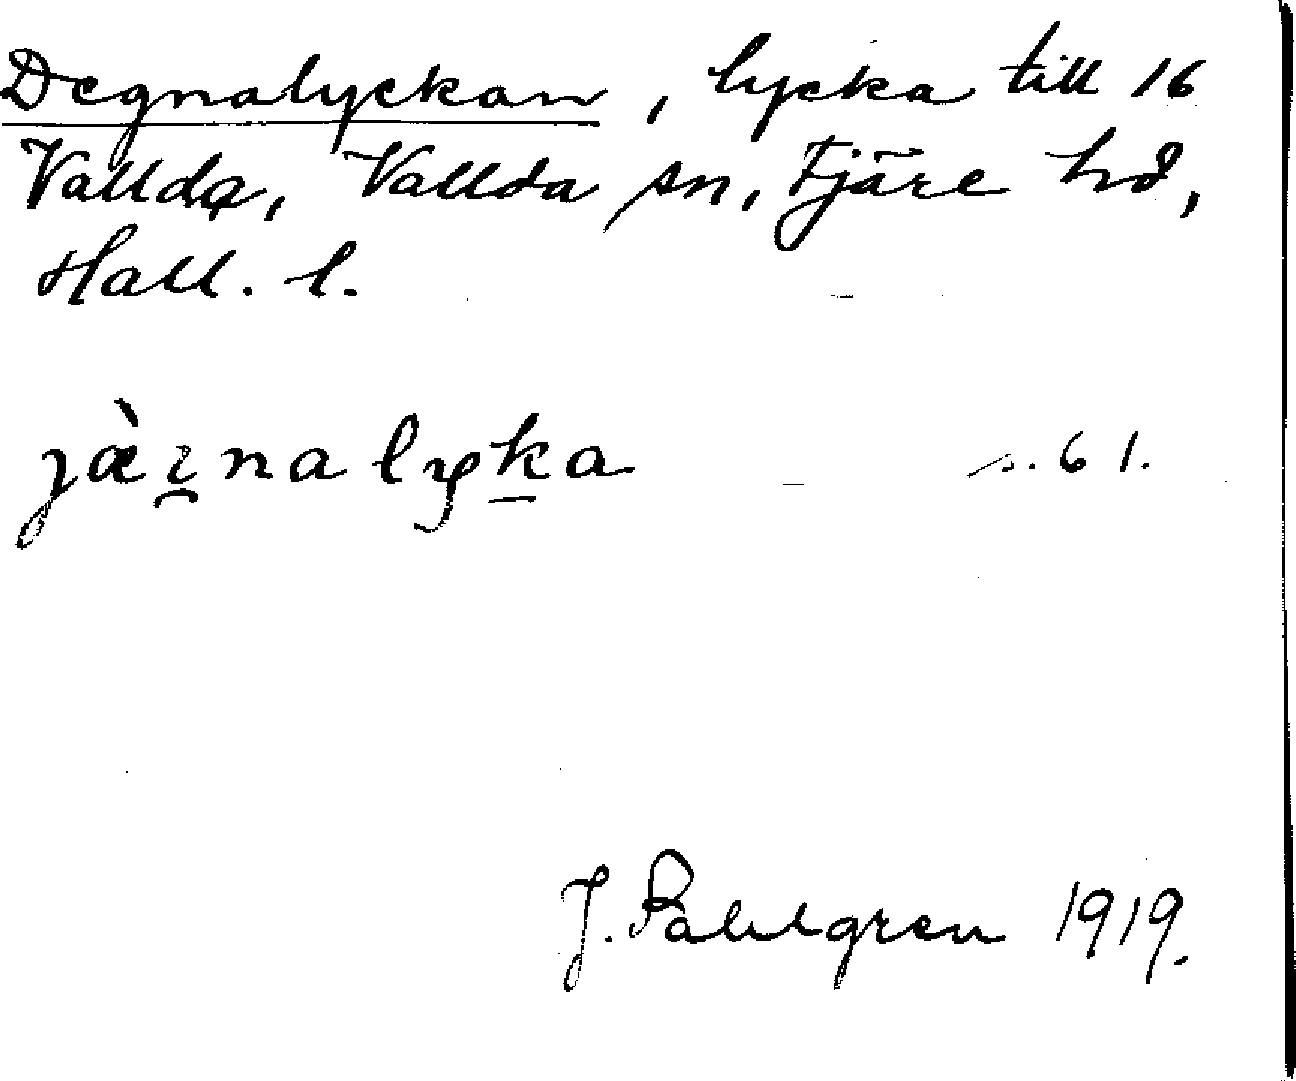 Degnalyckan, lycka till 16
Vallda, Vallda sn, Fjäre hd,
Hall. l.
jæ̀i̯nalyka s. 61.
J. Palmgren 1919.